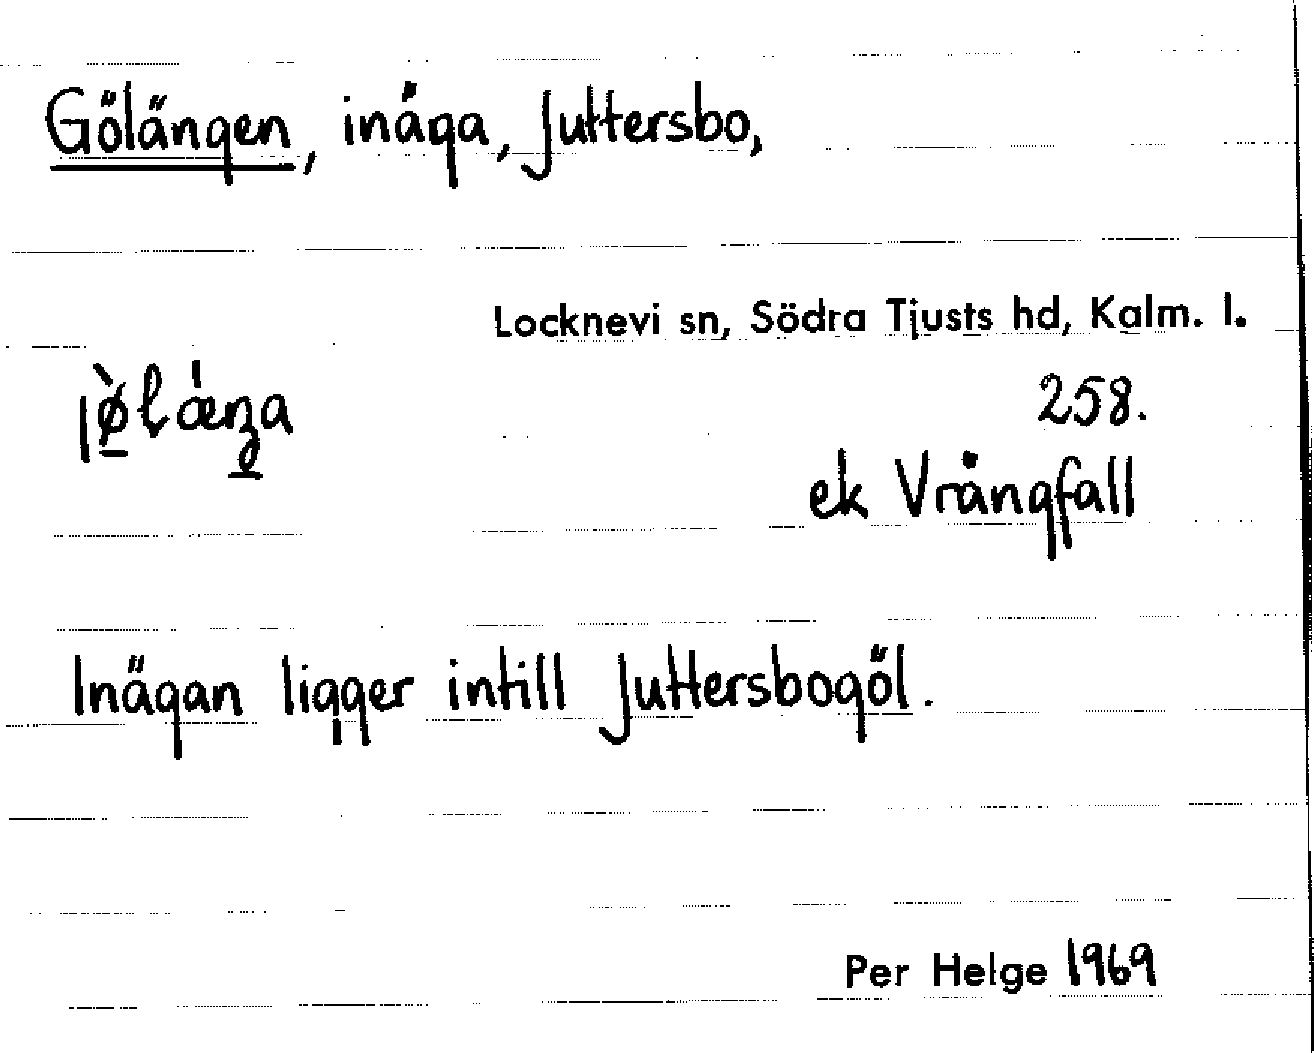 Gölängen, inäga, Juttersbo,
Locknevi sn, Södra Tjusts hd, Kalm. l.
258.
ek Vrångfall
Inägan ligger intill Juttersbogöl.
Per Helge 1969